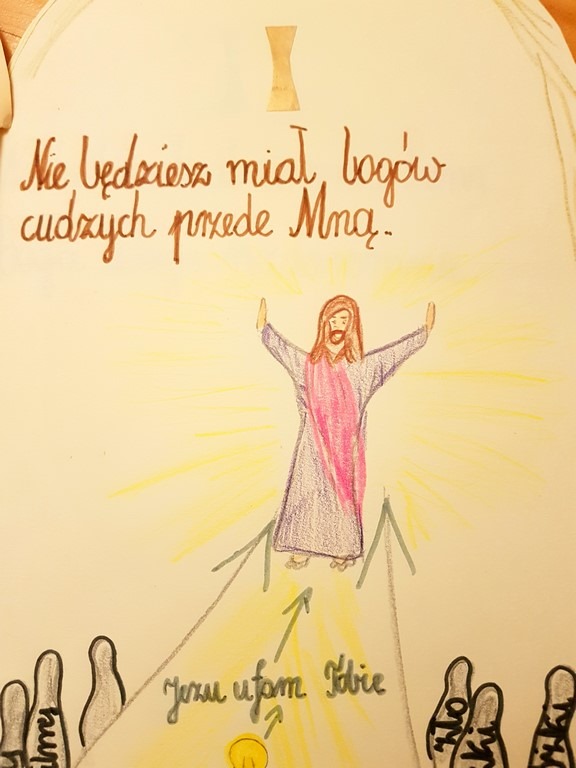 I
Nie będziesz miał bogów
cudzych przede Mną.
Jezu ufam Tobie
zło